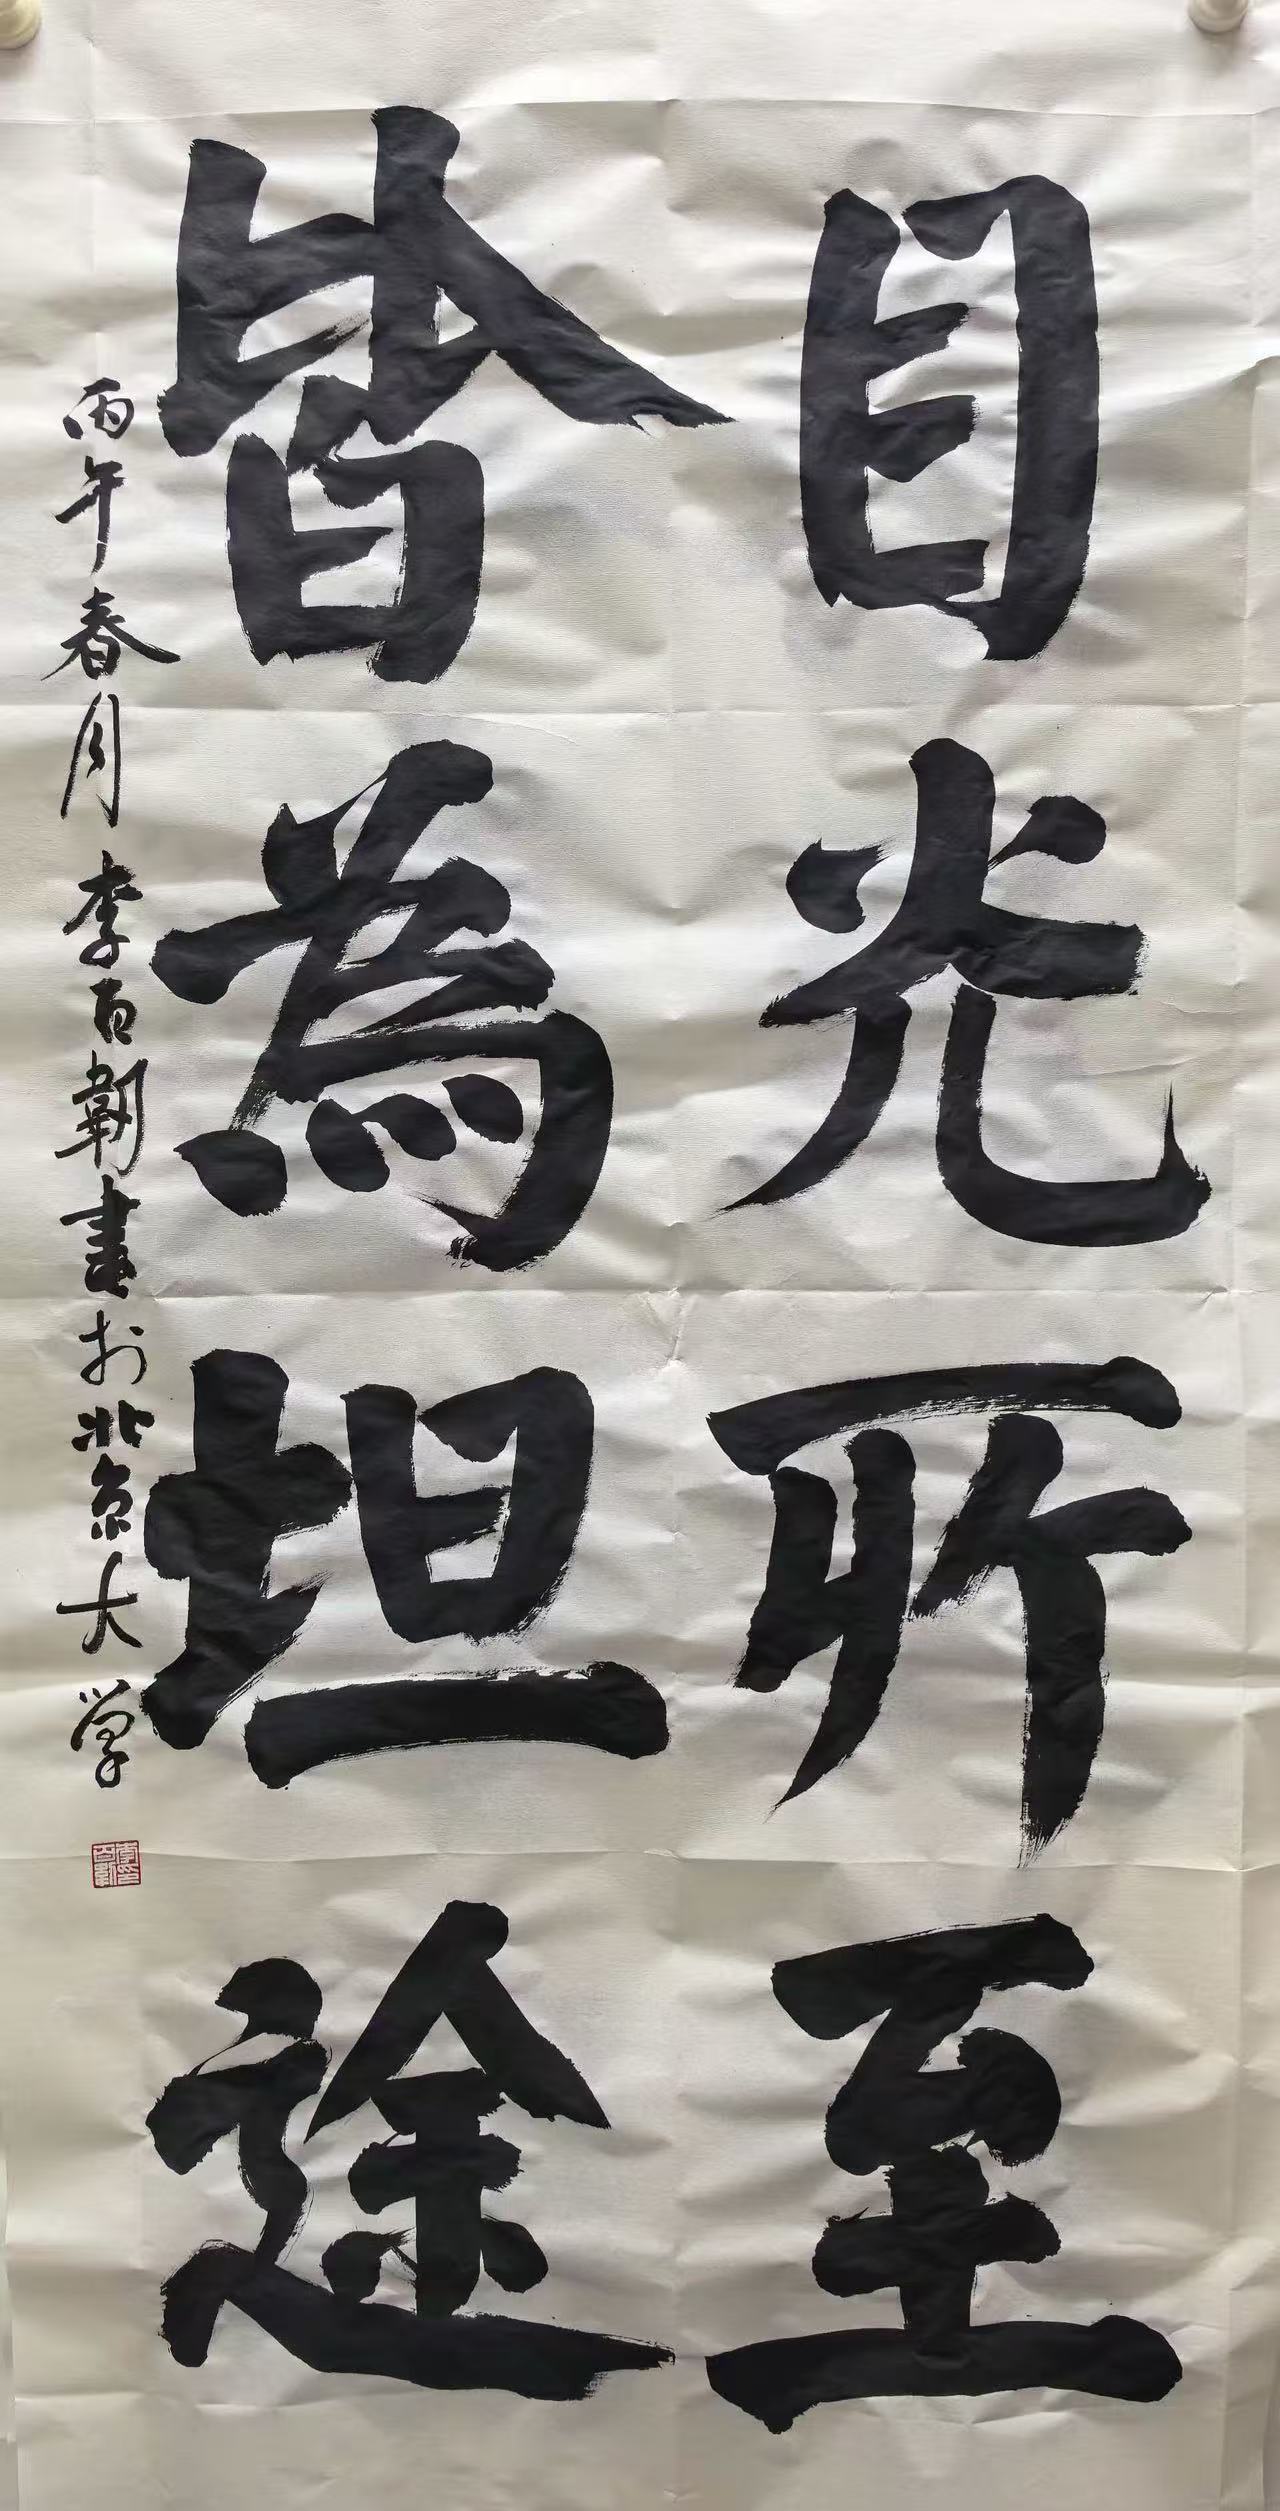 目光所至
皆為坦途
丙午春月李百韌書於北京大学